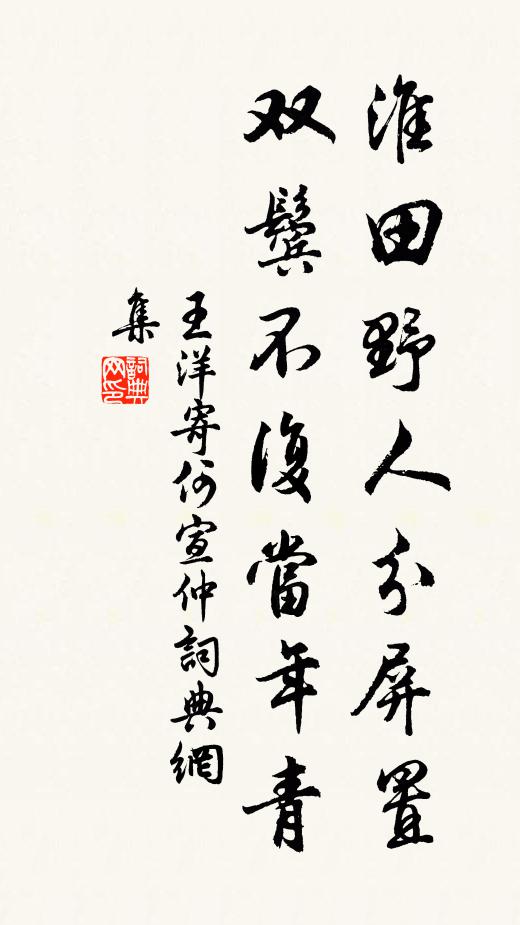 淮田野人分屏置
双鬓不復當年青
王洋寄何宣仲詞典網
集
詞典
网印